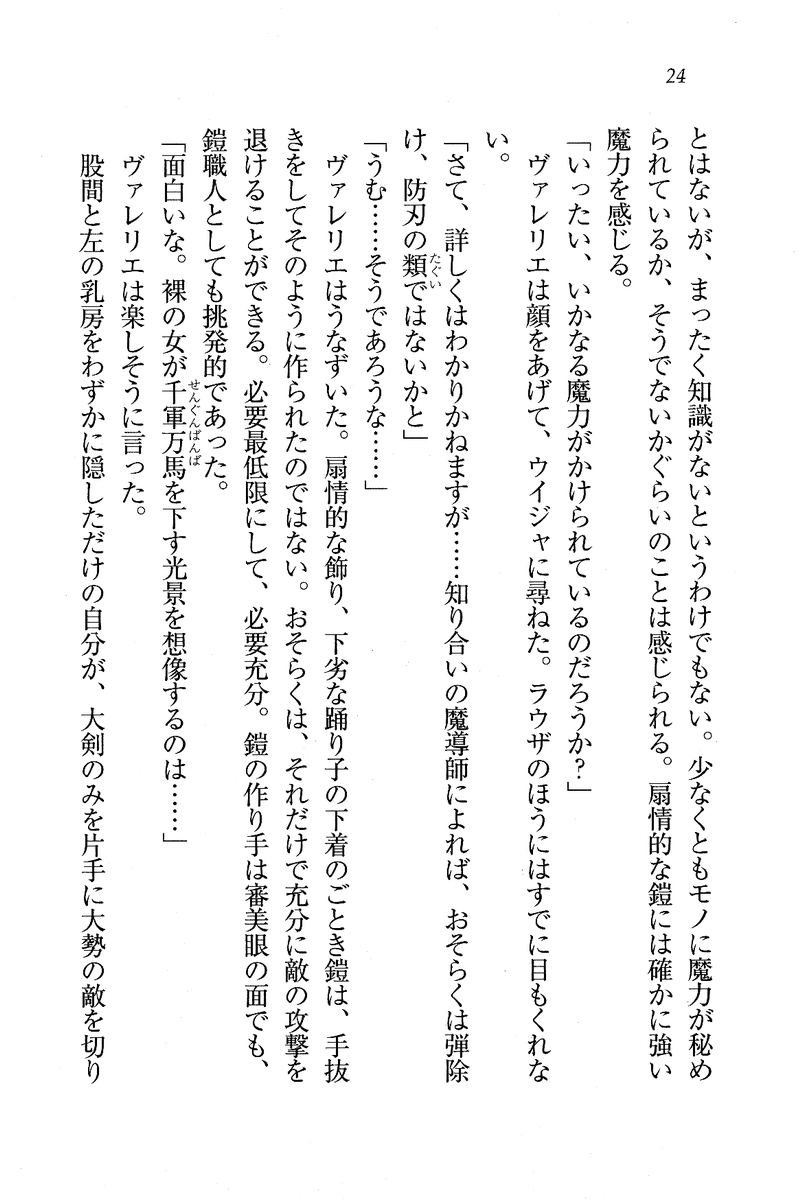 24
とはないが、まったく知識がないというわけでもない。少なくともモノに魔力が秘め
られているか、そうでないかぐらいのことは感じられる。扇情的な鎧には確かに強い
魔力を感じる。
「いったい、いかなる魔力がかけられているのだろうか？」
ヴァレリエは顔をあげて、ウイジャに尋ねた。ラウザのほうにはすでに目もくれな
い。
「さて、詳しくはわかりかねますが……知り合いの魔導師によれば、おそらくは弾除
け、防刃の類ではないかと」
たぐい
「うむ……そうであろうな……」
ヴァレリエはうなずいた。扇情的な飾り、下劣な踊り子の下着のごとき鎧は、手抜
きをしてそのように作られたのではない。おそらくは、それだけで充分に敵の攻撃を
退けることができる。必要最低限にして、必要充分。鎧の作り手は審美眼の面でも、
鎧職人としても挑発的であった。
「面白いな。裸の女が千軍万馬を下す光景を想像するのは……」
せんぐんばんば
ヴァレリエは楽しそうに言った。
股間と左の乳房をわずかに隠しただけの自分が、大剣のみを片手に大勢の敵を切り